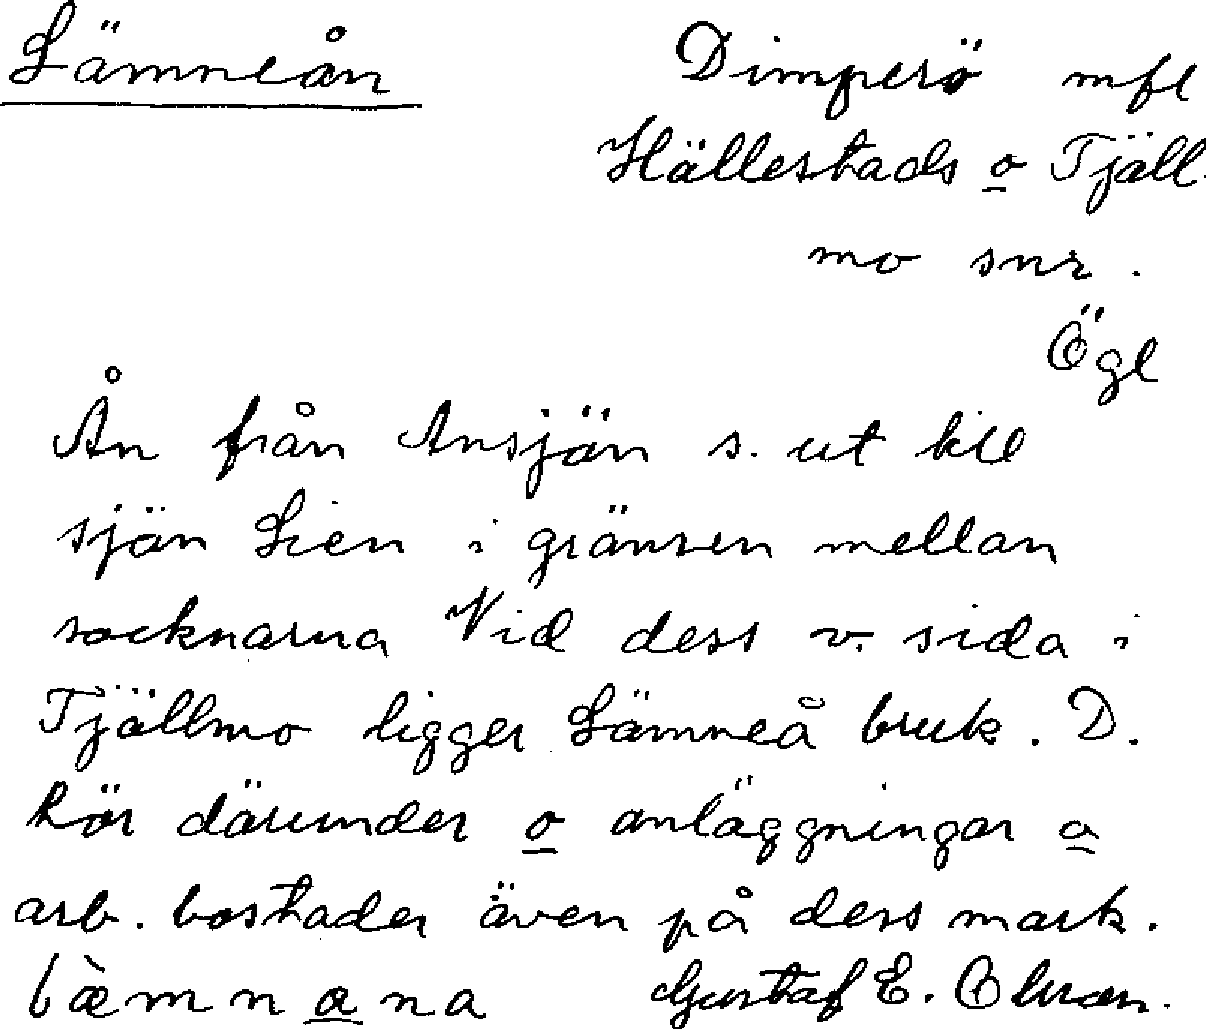 Lämneån Dimperö mfl
Hällestads o Tjäll
mo snr.
Ögl
Ån från Ansjön s. ut till
sjön Lien i gränsen mellan
socknarna Vid dess v. sida i
Tjällmo ligger Lämneå bruk. D.
hör därunder o anläggningar o
arb. bostader även på dess mark.
læ̀mnana Gustaf E. Olsson.